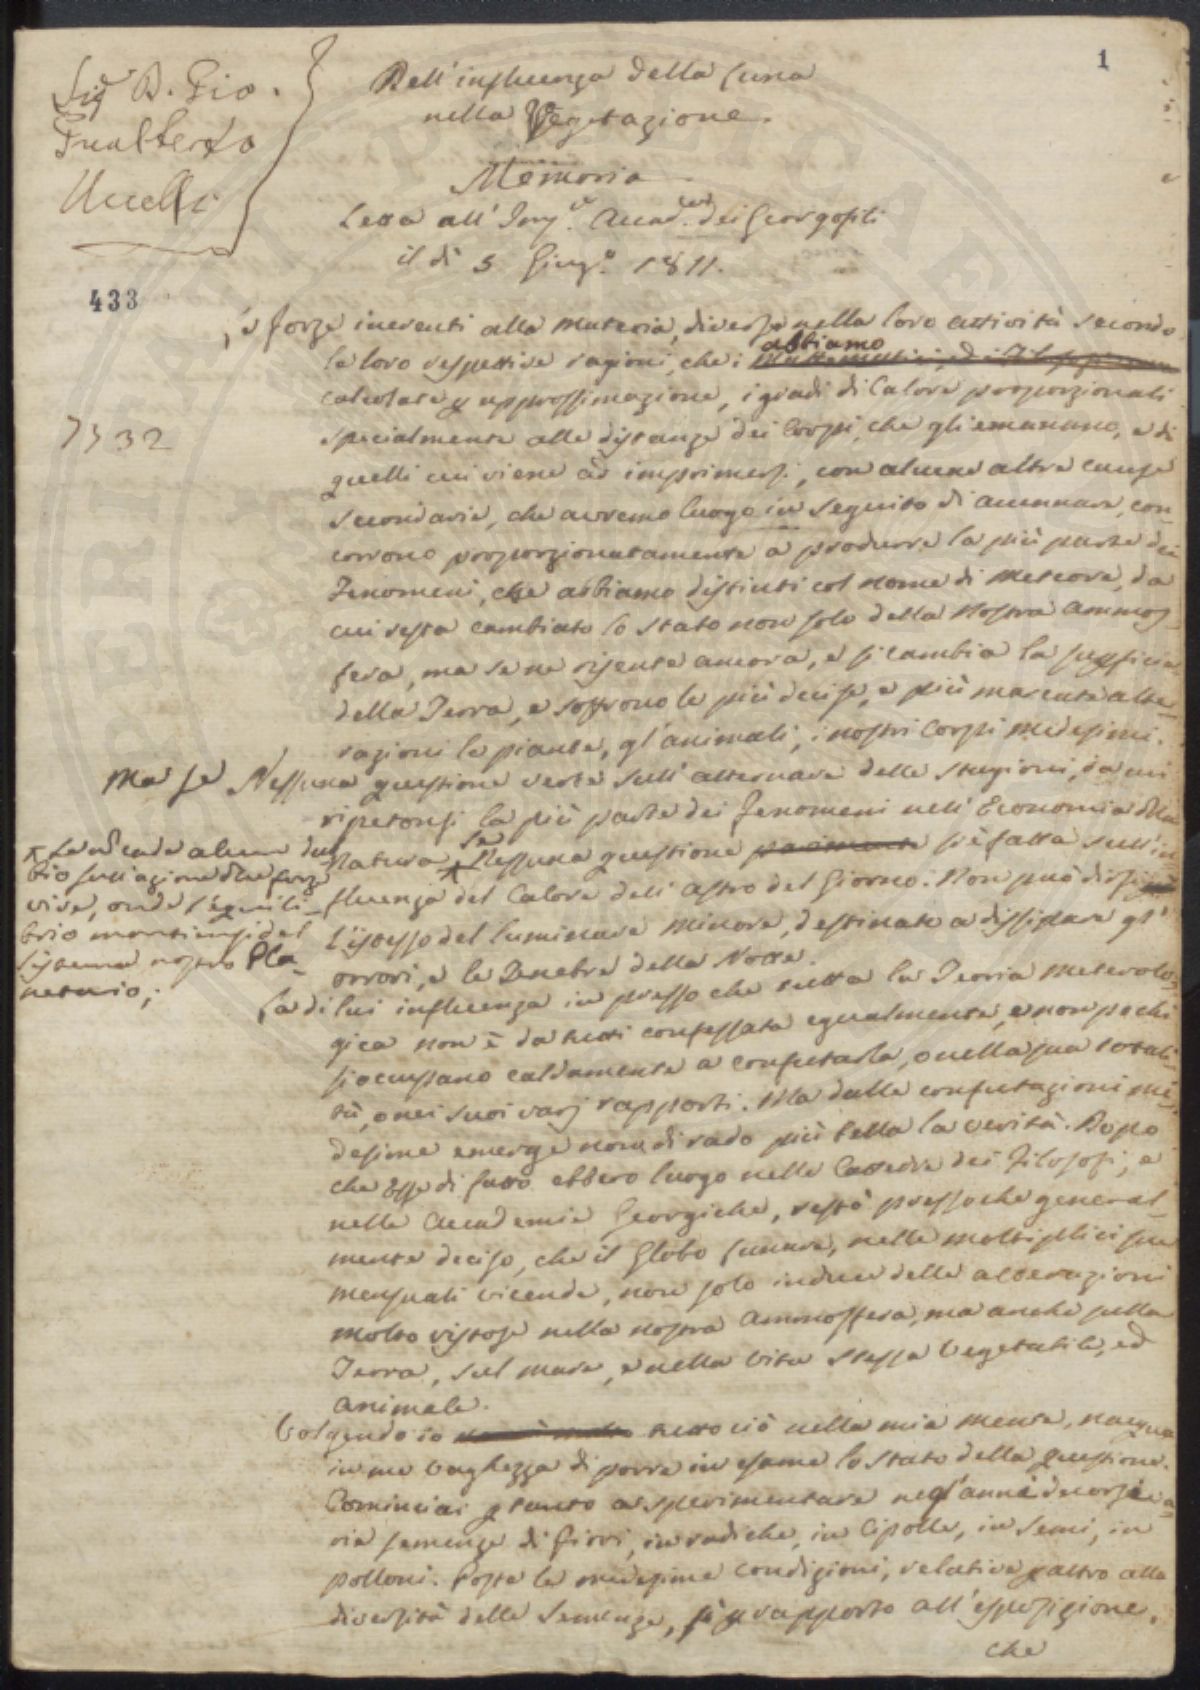 1
Sig.r D. Gio.
Gualberto
Uccelli
Dell'influenza della Luna
nella Vegetazione.
Memoria
Letta all'Imp.le Accad. dei Georgofili
il dì 5 Giug.o 1811.
433
Le forze inerenti alla materia, diverse nella loro attività secondo
le loro respettive ragioni, che i abbiamo
calcolate p approssimazione, i gradi di Calore proporzionali
specialmente alle distanze dei Corpi, che gli emanano, e di
quelli cui viene ad imprimersi, con alcune altre cause
secondarie, che avremo luogo in seguito di accennare, con-
corrono proporzionatamente a produrre la più parte dei
Fenomeni, che abbiamo distinti col nome di Meteore, da
cui resta cambiato lo stato non solo della nostra Ammos-
fera, ma se ne risente ancora, e si cambia la superficie
della Terra, e soffrono le più decise, e più marcate alte-
razioni le piante, gl'animali, i nostri Corpi medesimi.
7332
Ma se Nessuna questione verte sull'alternare delle stagioni, da cui
ripetonsi la più parte dei Fenomeni nell'Economia della
Natura, se Nessuna questione si è fatta sull'in
fluenza del Calore dell'astro del Giorno: Non può dirsi
l'istesso del luminare minore, destinato a dissipare gl'
orrori, e le Tenebre della Notte.
se nè cade alcun dub
bio sull'azione delle forze
vive, onde l'equili-
brio mantiensi del
sistema nostro Pla-
netario;
La di lui influenza in presso che tutta la Teoria Meteorolo-
gica non è da tutti confessata egualmente, e non pochi
si occupano caldamente a confutarla, o nella sua totali-
tà, o nei suoi varj rapporti. Ma dalle confutazioni me-
desime emerge non di rado più bella la verità. Dopo
che Esse di fatto ebbero luogo nelle Cattedre dei Filosofi, e
nelle Accademie Georgiche, restò pressoche general-
mente deciso, che il Globo Lunare, nelle moltiplici sue
mensuali vicende, non solo induce delle alterazioni
molto vistose nella nostra Ammosfera, ma anche sulla
Terra, sul mare, e nella vita stessa Vegetabile, ed
animale.
Volgendo io tutto ciò nella mia mente, nacque
in me vaghezza di porre in esame lo stato della questione.
Cominciai p tanto a sperimentare negl'anni decorsi va-
rie semenze di fiori, in radiche, in Cipolle, in Semi, in
polloni. Poste le medesime condizioni, relative p altro alla
diversità delle Semenze, sì p rapporto all'esposizione,
che